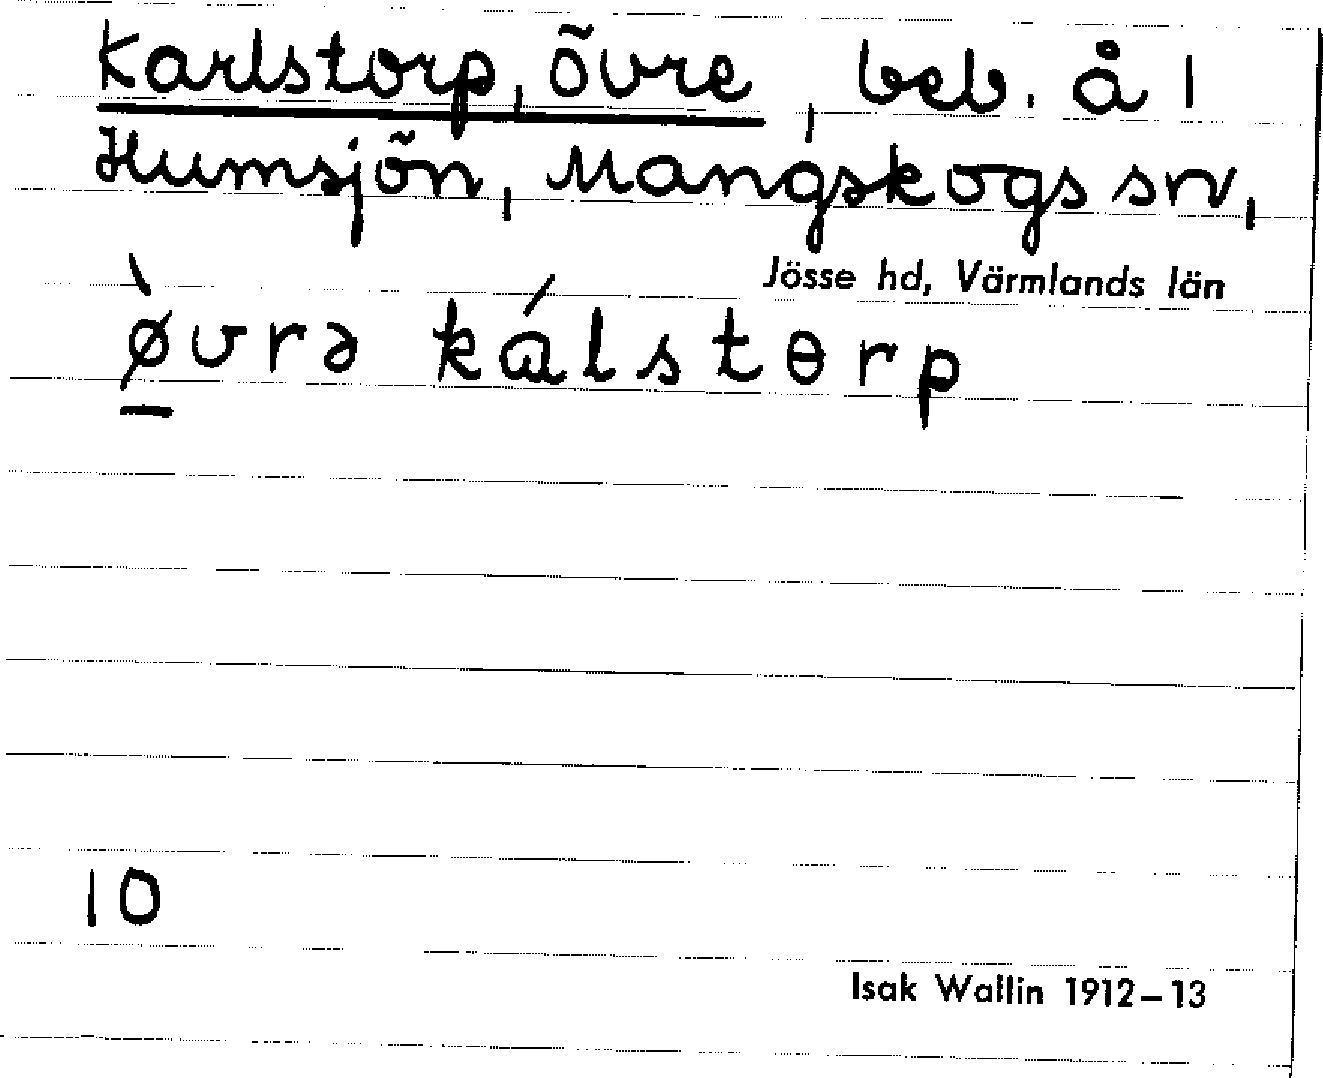 Karlstorp, õvre, beb. å 1
Humsjõn, Mangskogs sn,
Jösse hd, Värmlands län
ø̱̀vrə kɑ́lstɵrp
10
Isak Wallin 1912–13